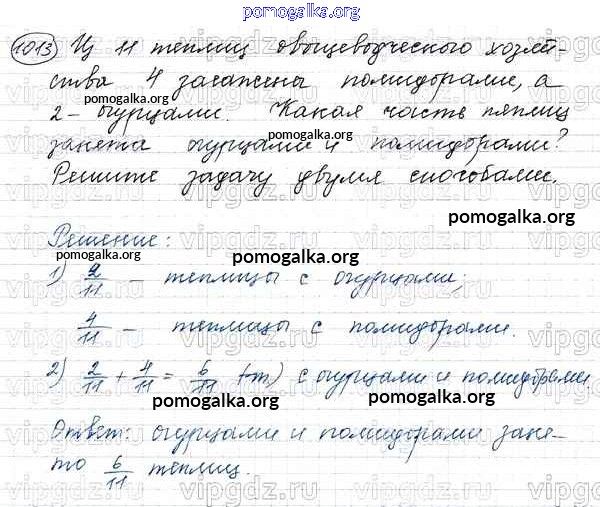 pomogalka.org
1013 Из 11 теплиц овощеводческого хозяй-
ства 4 засажены помидорами, а
pomogalka.org pomogalka.org
2 – огурцами. Какая часть теплиц
занята огурцами и помидорами?
pomogalka.org
Решите задачу двумя способами.
pomogalka.org
Решение:
pomogalka.org
1) 2/11 – теплицы с огурцами;
4/11 – теплицы с помидорами.
2) 2/11 + 4/11 = 6/11 (т) с огурцами и помидорами.
pomogalka.org pomogalka.org
Ответ: огурцами и помидорами заня-
то 6/11 теплиц.